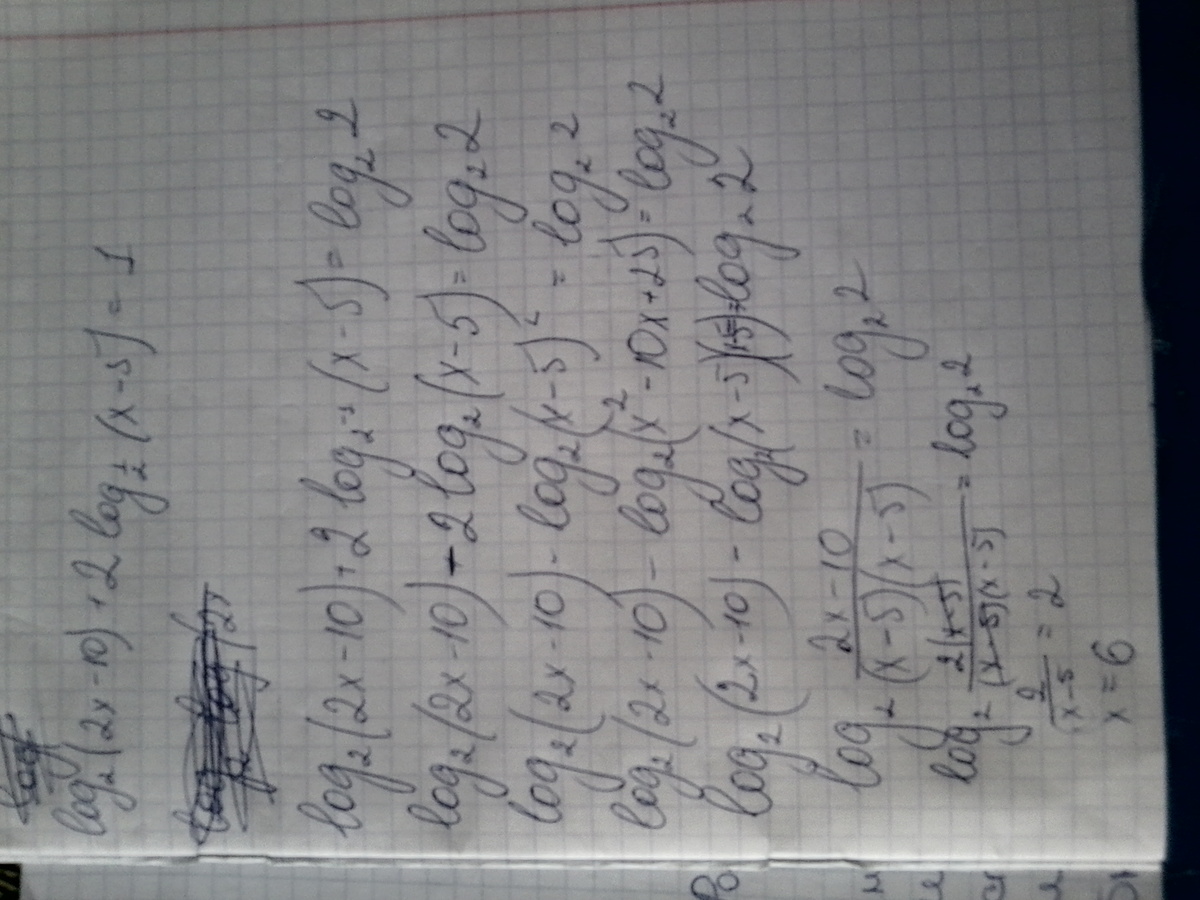 log₂(2x-10)+2log½(x-5)=1
log₂(2x-10)+2log₂⁻¹(x-5)=log₂2
log₂(2x-10)-2log₂(x-5)=log₂2
log₂(2x-10)-log₂(x-5)²=log₂2
log₂(2x-10)-log₂(x²-10x+25)=log₂2
log₂(2x-10)-log₂(x-5)=log₂2
log₂ (2x-10)/((x-5)(x-5)) = log₂2
log₂ 2(x-5)/((x-5)(x-5)) = log₂2
2/(x-5)=2
x=6